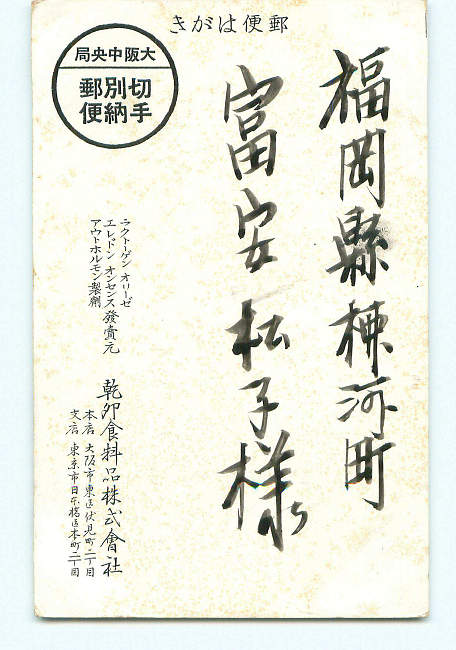 郵便はがき
大阪中央局
切手別納郵便
福岡縣柳河町
富安松子様
ラクトーゲン オリーゼ
エレドン オンセンス 發賣元
アウトホルモン製劑
乾卯食料品株式會社
本店 大阪市東區伏見町二丁目
支店 東京市日本橋區本町二丁目